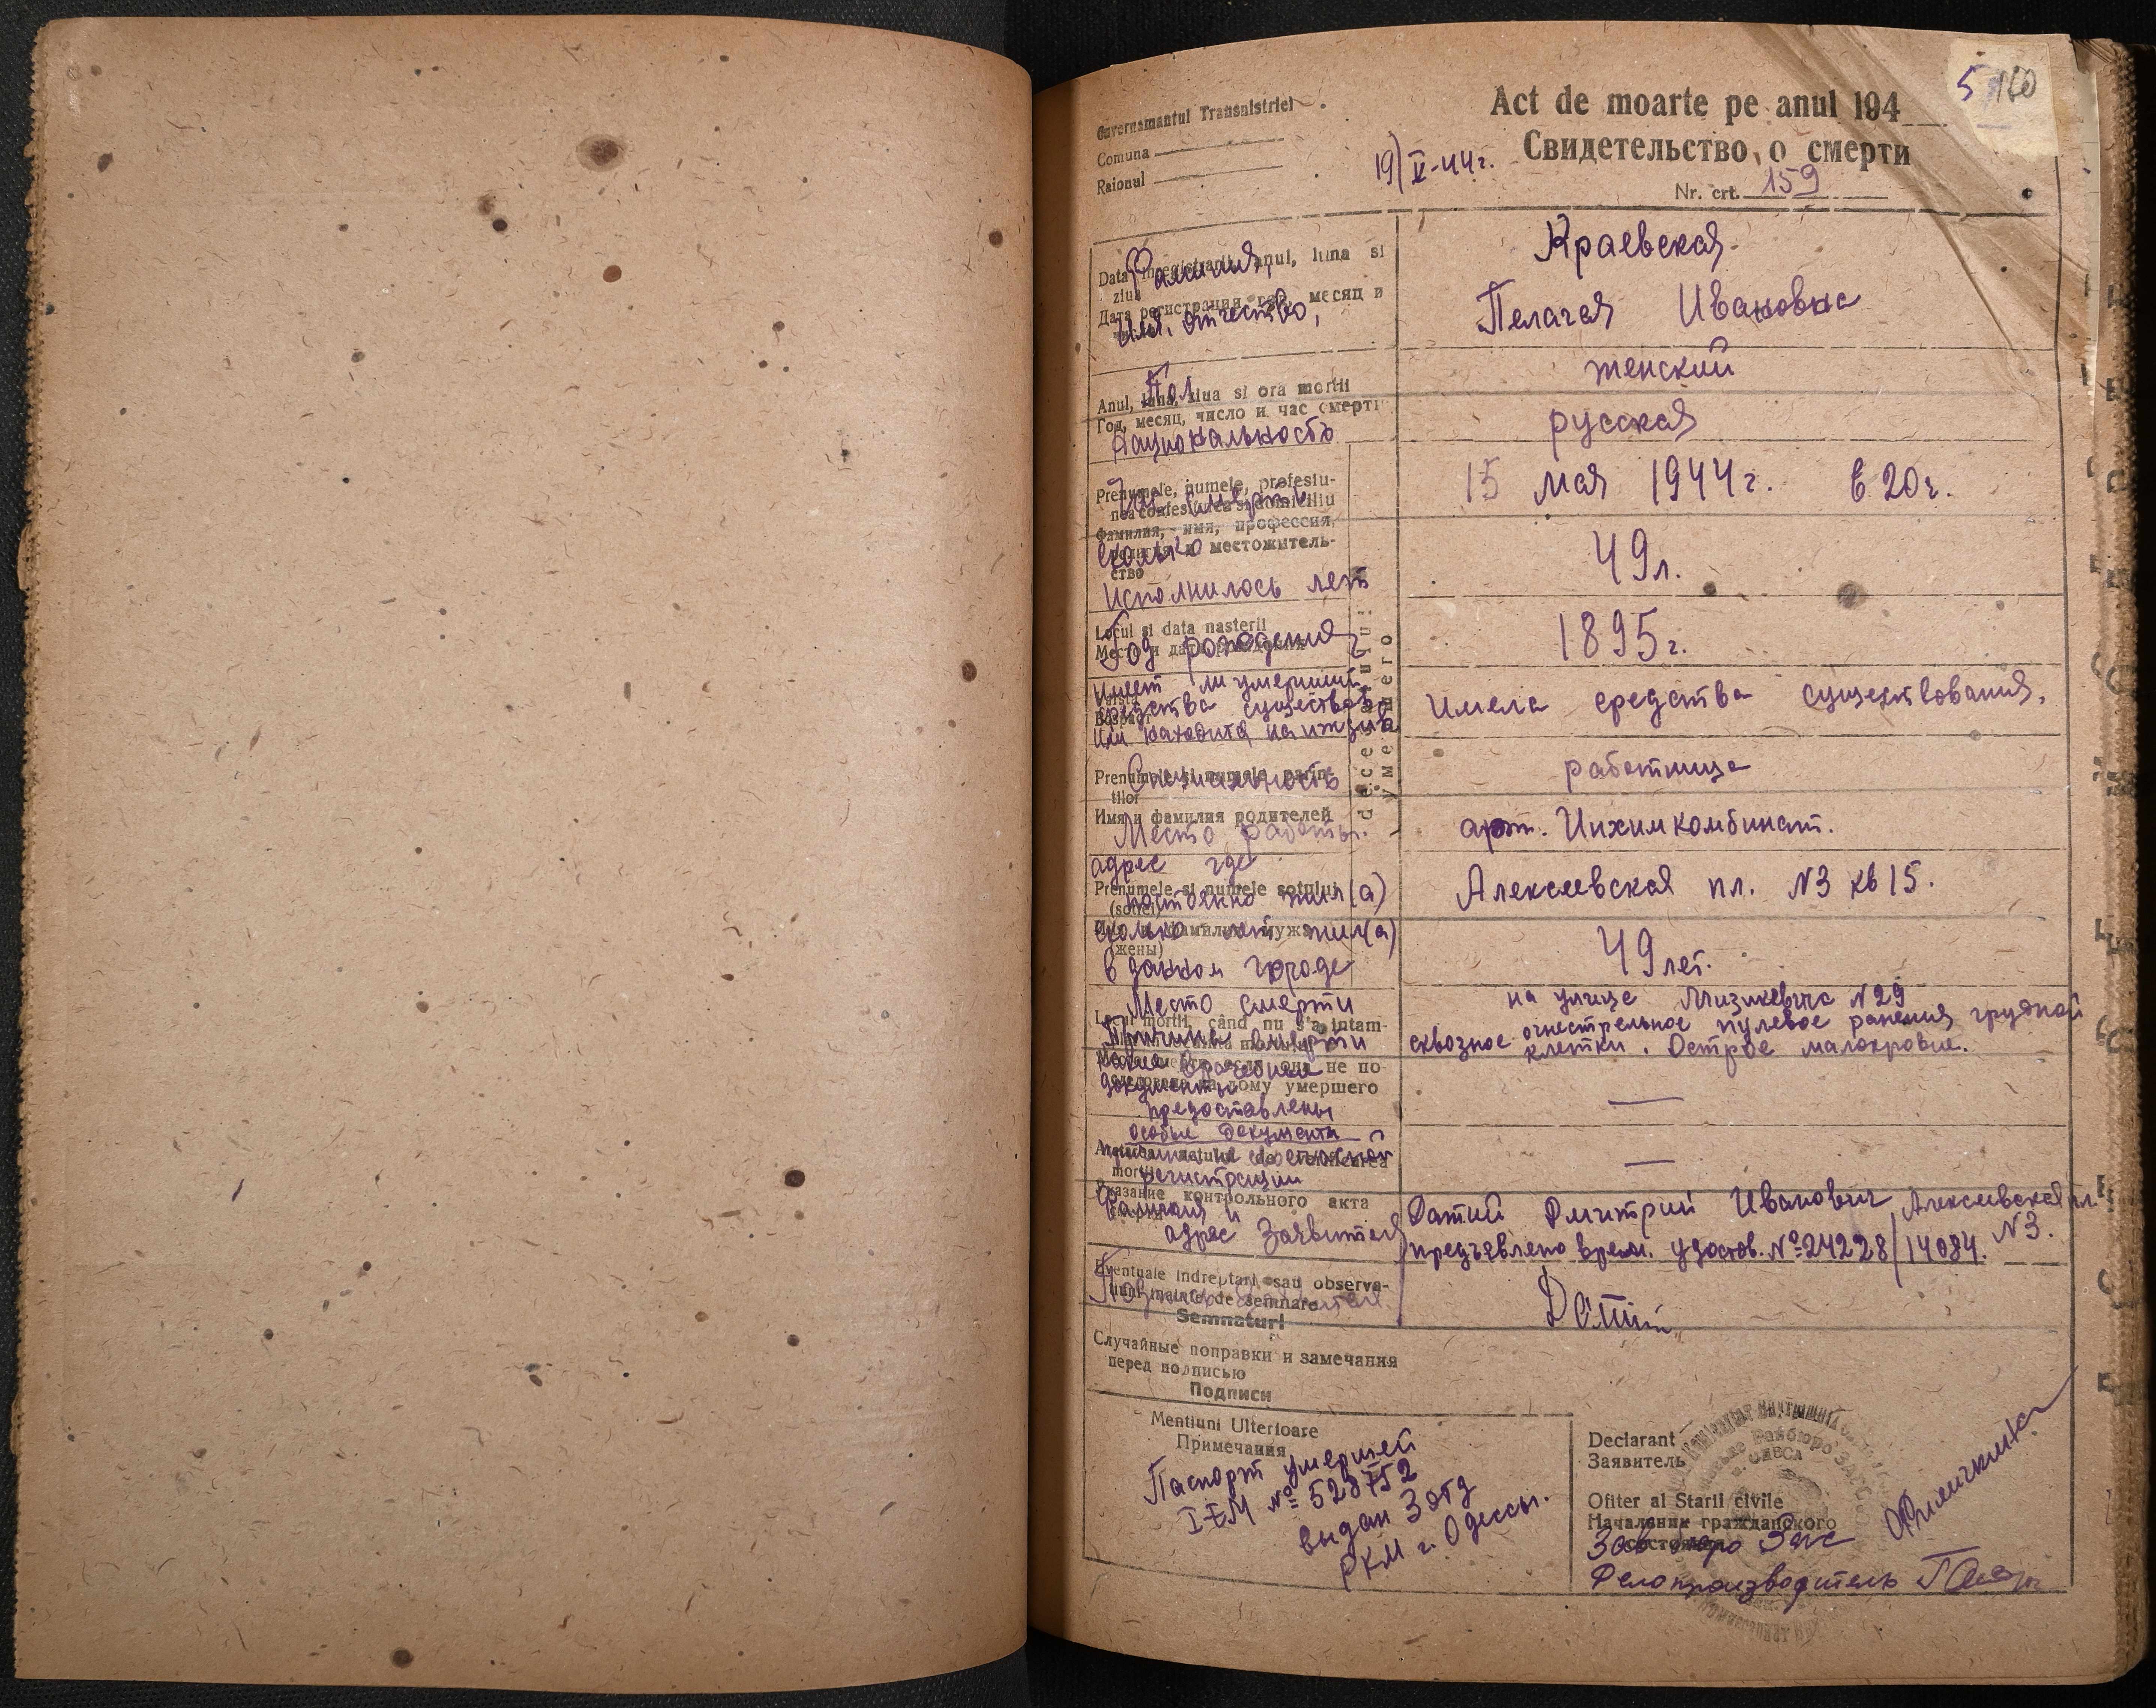 5 160
Guvernamantul Transnistriei
Comuna
Raionul
Act de moarte pe anul 194
Свидетельство о смерти
19/V-44г.
Nr. crt. 159
Data inregistrarii, anul, luna si
ziua
Дата регистрации год, месяц и
Фамилия,
Имя, отчество,
Краевская
Пелагея Ивановна
Anul, luna, ziua si ora mortii
Год, месяц, число и час смерти
Пол
женский
Национальность
русская
Prenumele, numele, profesiu-
nea confesiunea si domiciliu
Фамилия, имя, профессия,
местожитель-
ство
смерти
15 мая 1944г. в 20г.
сколько
исполнилось лет
49л.
Locul si data nasterii
Место и дата рождения
Год рождения
1895г.
decesatului:
умершего
Varsta
Возраст
Имеет ли умерший
средства существов.
или находится на ижд
Имела средства существования.
Prenumele si numele parin-
tilor
Имя и фамилия родителей
Специальность
работница
Место работы.
арт. Инхимкомбинат.
Prenumele si numele sotului
(sotiei)
адрес где
постоянно жил(а)
Алексеевская пл. N3 кв 15.
Имя и фамилия мужа
(жены)
сколько лет жил(а)
в данном городе
49 лет.
Locul mortii, când nu s'a intam-
не по-
на дому умершего
Место смерти
на улице Мизикевича N29
Причина смерти
сквозное огнестрельное пулевое ранения грудной
клетки. Острое малокровие.
какие врачебные
документы
предоставлены
—
особые документы
регистрации
—
mortii
Указание контрольного акта
Фамилия и
адрес Заявителя
Датий Дмитрий Иванович Алексеевская пл.
N3.
предъявлено врем. удостов. №24228/14084.
Eventuale indreptari sau observa-
tiuni inainte de semnare
Semnaturi
Датий
Случайные поправки и замечания
перед подписью
Подписи
Mentiuni Ulterioare
Примечания
Паспорт умершей
№ 528752
выдан 3 отд
РКМ г. Одессы.
Declarant
Заявитель
Ofiter al Starii civile
Началник гражданского
состояния
Зав бюро Загс
Делопроизводитель